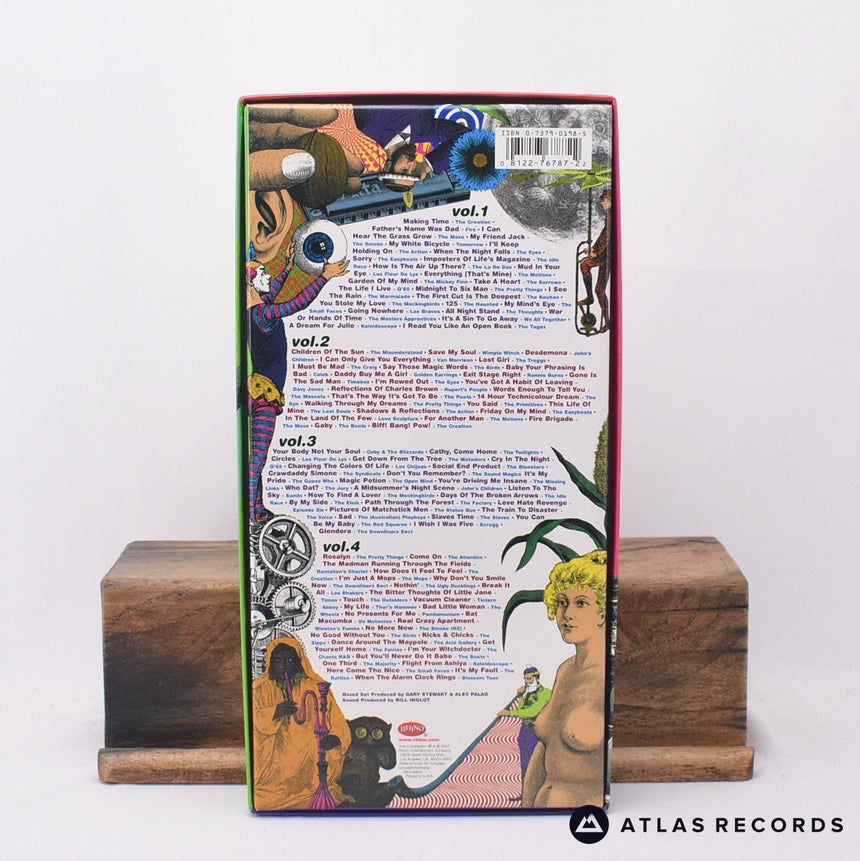 ISBN 0-7379-0198-5
0 8122-76787-2 2
vol.1
Making Time - The Creation •
Father's Name Was Dad - Fire • I Can
Hear The Grass Grow - The Move • My Friend Jack -
The Smoke • My White Bicycle - Tomorrow • I'll Keep
Holding On - The Action • When The Night Falls - The Eyes •
Sorry - The Easybeats • Imposters Of Life's Magazine - The Idle
Race • How Is The Air Up There? - The La De Das • Mud In Your
Eye - Les Fleur De Lys • Everything (That's Mine) - The Motions •
Garden Of My Mind - The Mickey Finn • Take A Heart - The Sorrows •
The Life I Live - Q'65 • Midnight To Six Man - The Pretty Things • I See
The Rain - The Marmalade • The First Cut Is The Deepest - The Koobas •
You Stole My Love - The Mockingbirds • 125 - The Haunted • My Mind's Eye - The
Small Faces • Going Nowhere - Los Bravos • All Night Stand - The Thoughts • War
Or Hands Of Time - The Masters Apprentices • It's A Sin To Go Away - We All Together •
A Dream For Julie - Kaleidoscope • I Read You Like An Open Book - The Tages
vol.2
Children Of The Sun - The Misunderstood • Save My Soul - Wimple Winch • Desdemona - John's
Children • I Can Only Give You Everything - Van Morrison • Lost Girl - The Troggs •
I Must Be Mad - The Craig • Say Those Magic Words - The Birds • Baby Your Phrasing Is
Bad - Caleb • Daddy Buy Me A Girl - Golden Earrings • Exit Stage Right - Ronnie Burns • Gone Is
The Sad Man - Timebox • I'm Rowed Out - The Eyes • You've Got A Habit Of Leaving -
Davy Jones • Reflections Of Charles Brown - Rupert's People • Words Enough To Tell You -
The Mascots • That's The Way It's Got To Be - The Poets • 14 Hour Technicolour Dream - The
Syn • Walking Through My Dreams - The Pretty Things • You Said - The Primitives • This Life Of
Mine - The Lost Souls • Shadows & Reflections - The Action • Friday On My Mind - The Easybeats
• In The Land Of The Few - Love Sculpture • For Another Man - The Motions • Fire Brigade -
The Move • Gaby - The Boots • Biff! Bang! Pow! - The Creation
vol.3
Your Body Not Your Soul - Cuby & The Blizzards • Cathy, Come Home - The Twilights •
Circles - Les Fleur De Lys • Get Down From The Tree - The Matadors • Cry In The Night -
Q'65 • Changing The Colors Of Life - Los Chijuas • Social End Product - The Bluestars •
Crawdaddy Simone - The Syndicats • Don't You Remember? - The Sound Magics • It's My
Pride - The Guess Who • Magic Potion - The Open Mind • You're Driving Me Insane - The Missing
Links • Who Dat? - The Jury • A Midsummer's Night Scene - John's Children • Listen To The
Sky - Sands • How To Find A Lover - The Mockingbirds • Days Of The Broken Arrows - The Idle
Race • By My Side - The Elois • Path Through The Forest - The Factory • Love Hate Revenge -
Episode Six • Pictures Of Matchstick Men - The Status Quo • The Train To Disaster -
The Voice • Sad - The (Australian) Playboys • Slaves Time - The Slaves • You Can
Be My Baby - The Red Squares • I Wish I Was Five - Scrugg •
Glendora - The Downliners Sect
vol.4
Rosalyn - The Pretty Things • Come On - The Atlantics •
The Madman Running Through The Fields -
Dantalion's Chariot • How Does It Feel To Feel - The
Creation • I'm Just A Mops - The Mops • Why Don't You Smile
Now - The Downliners Sect • Nothin' - The Ugly Ducklings • Break It
All - Los Shakers • The Bitter Thoughts Of Little Jane -
Timon • Touch - The Outsiders • Vacuum Cleaner - Tintern
Abbey • My Life - Thor's Hammer • Bad Little Woman - The
Wheels • No Presents For Me - Pandamonium • Bat
Macumba - Os Mutantes • Real Crazy Apartment -
Winston's Fumbs • No More Now - The Smoke (NZ) •
No Good Without You - The Birds • Kicks & Chicks - The
Zipps • Dance Around The Maypole - The Acid Gallery • Get
Yourself Home - The Fairies • I'm Your Witchdoctor - The
Chants R&B • But You'll Never Do It Babe - The Boots •
One Third - The Majority • Flight From Ashiya - Kaleidoscope •
Here Come The Nice - The Small Faces • It's My Fault - The
Rattles • When The Alarm Clock Rings - Blossom Toes
Boxed Set Produced by GARY STEWART & ALEC PALAO
Sound Produced by BILL INGLOT
RHINO
www.rhino.com
This Compilation ℗ & © 2001
Rhino Entertainment Company,
Los Angeles, CA
Printed in U.S.A.
ATLAS RECORDS